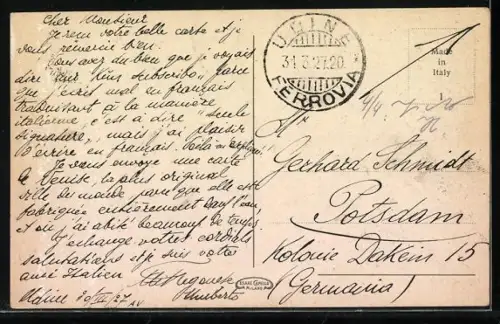 Cher Monsieur
Je reçu votre belle carte et je
vous remercie bien.
Vous avez du bien que je voyais
dire "nur Kus subscribo" parce
que j'écris mal en français
traduisant à la manière
italienne, c'est à dire "seule
signature", mais j'ai plaisir
d'écrire en français. Voilà
Je vous envoye une carte
de Venise, la plus original
ville du monde, parce que elle est
fabriquée entièrement dans l'eau
et où j'ai abité beaucoup de temps.
J'echange votres cordials
salutations et je suis votre
ami Italien
Umberto
Udine 30/III/27
UDINE
31.3.27.20
FERROVIA
Made
in
Italy
1
Hr
Gerhard Schmidt
Potsdam
Kolonie Daheim 15
(Germania)